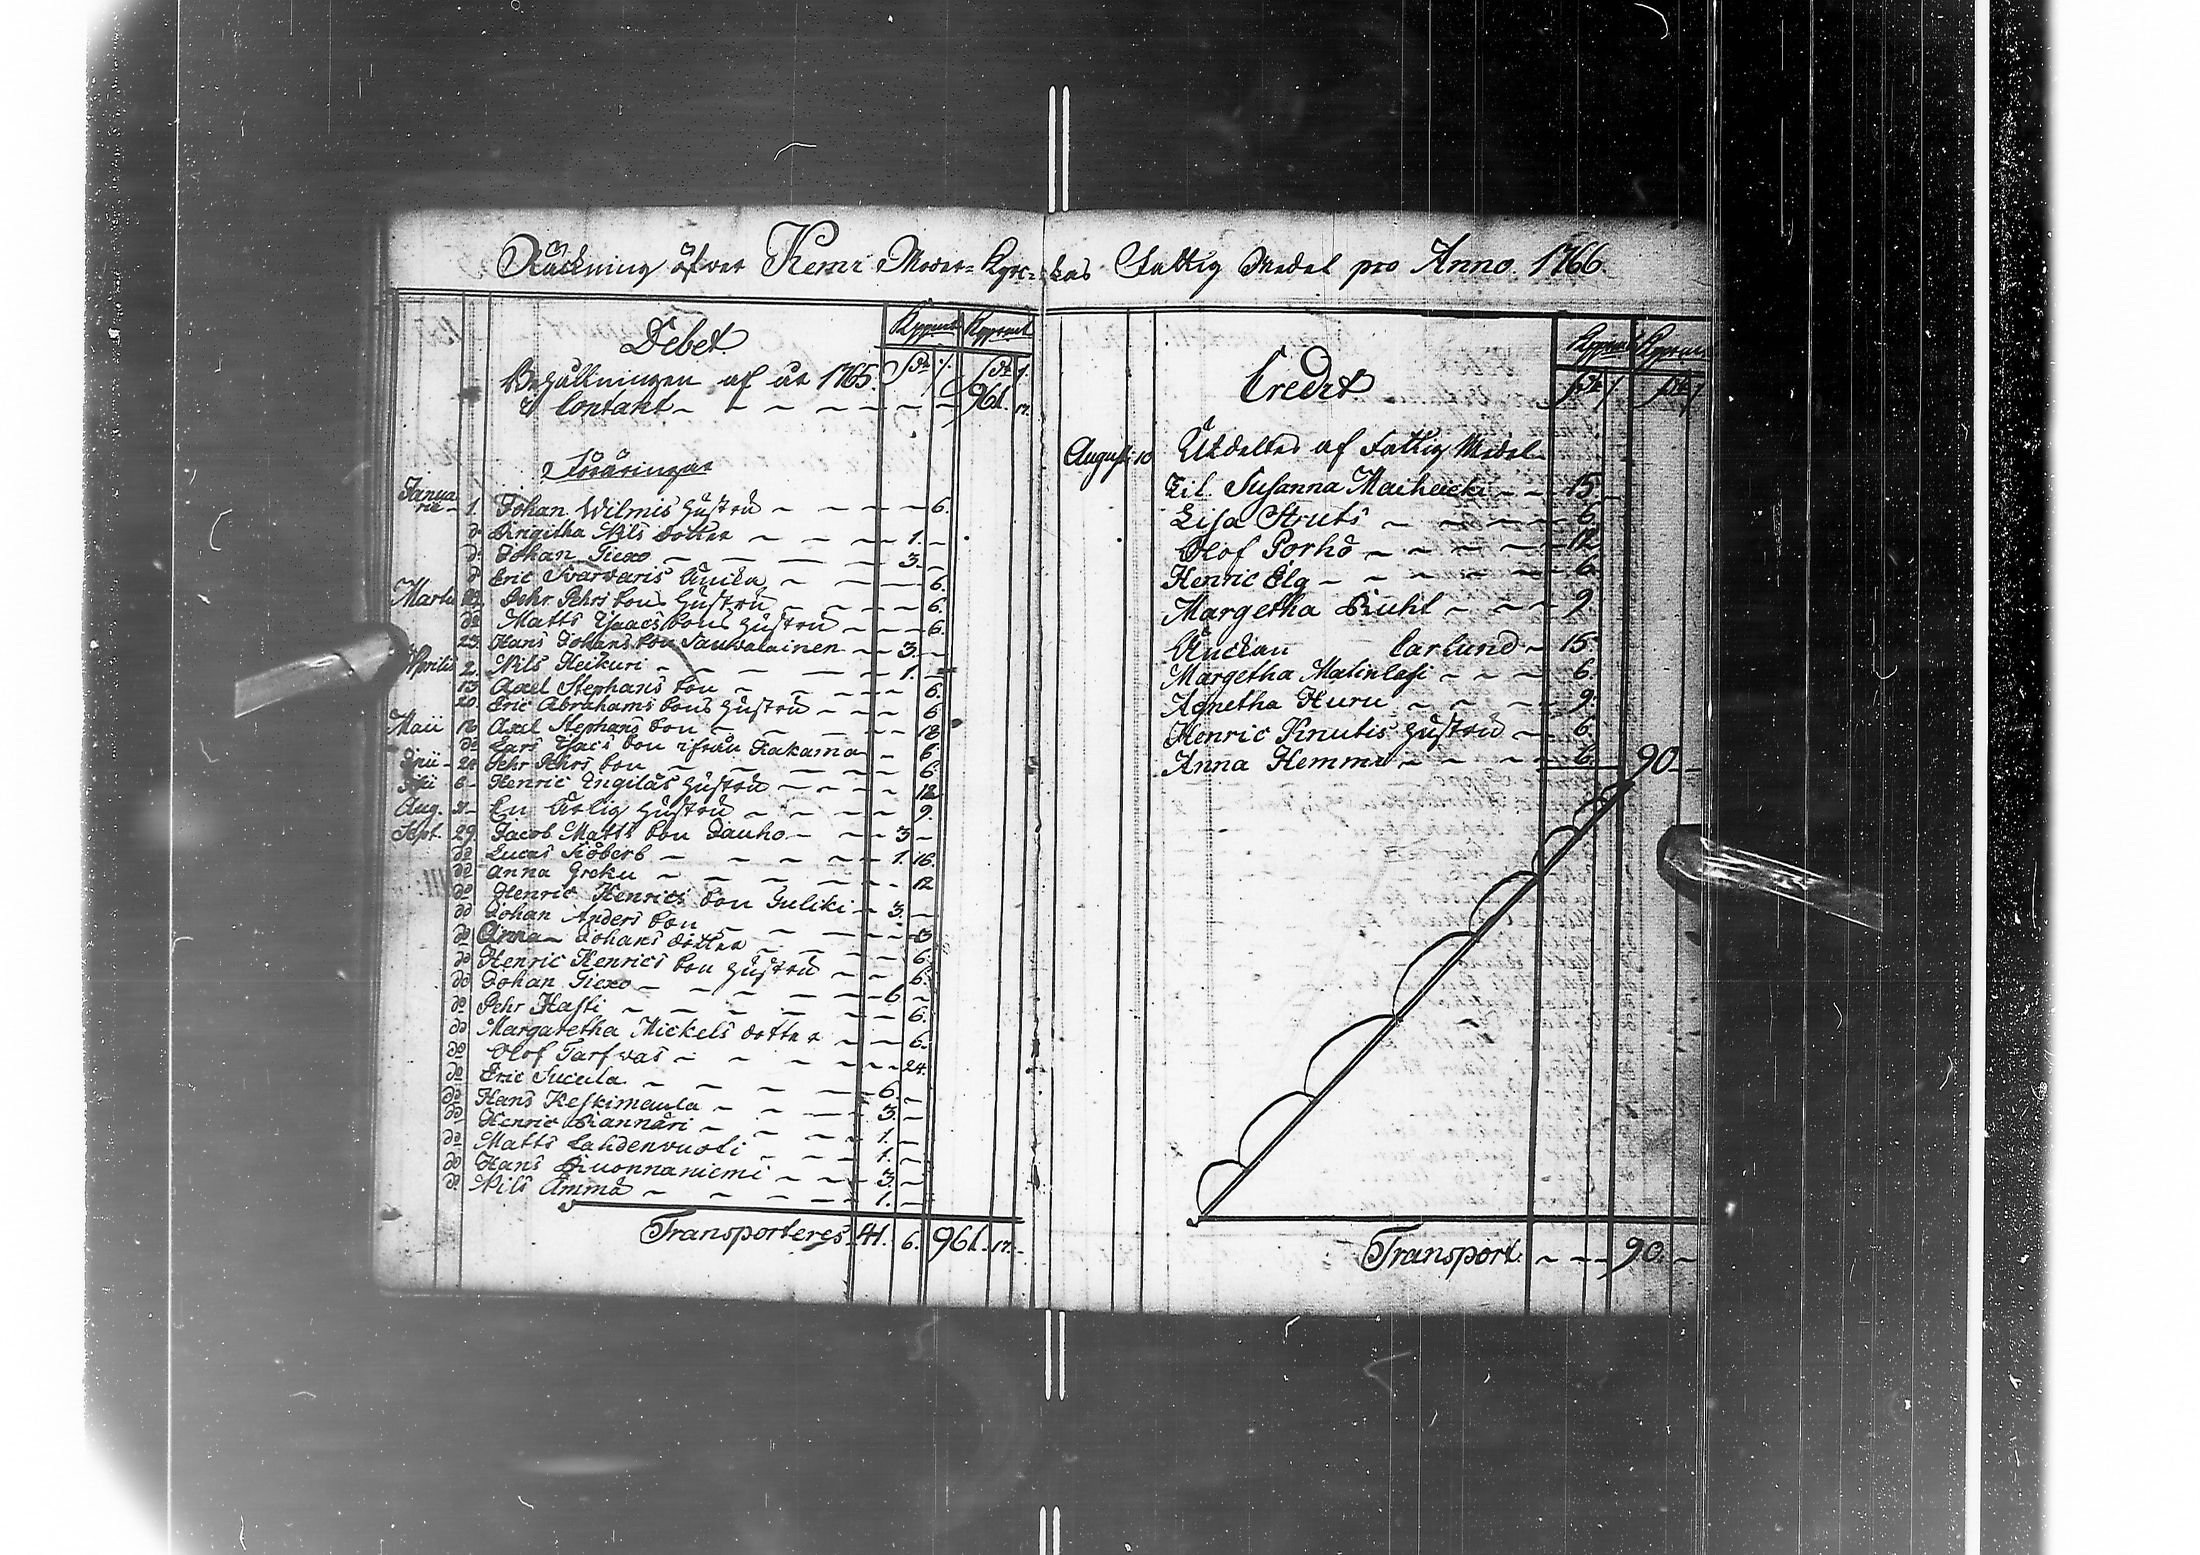 Räckning öfver Kemi Moder-Kyrc-kas Fattig Medel pro Anno 1766.
Debet
Kppmt Kppmt
Behållningen af år 1765.
Contant - - - - - - - 961. 17.
Föräringar
Januarii 1. Johan Wilmis hustru - - - - 6.
do Brigitha Nils dotter - - - 1. -
do Johan Tiexo - - - - 3. -
do Eric Svarvaris Änika - - - 6.
Martii Pehr Pehrs son hustru - - - 6.
do Matts Isaacs sons hustru - - - 6.
25. Hans Johans son Sauvalainen - - 3. -
Aprilis 2. Nils Heikuri - - - - 1. -
13. Axel Stephans son - - - - 6.
20. Eric Abrahams sons hustru - - - 6.
Maii 18 Axel Stephans son - - - - 18.
do Lars Isacs son ifrån Kakama - 6.
Junii - 24 Pehr Pehrs son - - - - 6.
Julii 6 - Henric Engilas hustru - - - - 12.
Aug. 31 - En ärlig hustru - - - - 9.
Sept. 29. Jacob Matts son Jauho - - - 3 -
do Lucas Siöberb - - - - 1. 16.
do Anna Greku - - - - - 12
do Henric Henrics son Juliki - 3. -
do Johan Anders son - - - - 3.
do Anna Johans dotter - - - 6.
do Henric Henrics son hustru - - 6.
do Johan Tiexo - - - - - 6 -
do Pehr Hasti - - - - - 6.
do Margaretha Mickels dotter - - 6.
do Olof Tarfvas - - - - - 24.
do Eric Sucula - - - - 6. -
do Hans Keskimaula - - - 3. -
do Henric Kiannäri - - - 1. -
do Matts Lahdenvuoti - - - 1. -
do Hans Kuonnaniemi - - - 3. -
do Nils Ämmä - - - - 1. -
Transporteres 41. 6. 961. 17.
Kppmt Kppmt
Credit
Augusti 10 Utdeltes af Fattig Medel
Til Susanna Maihacki - - 15. -
Lisa Struts - - - - 6.
Olof Porho - - - - 12
Henric Elg - - - - - 6.
Margetha Kuht - - - 9
Änckan Carlund - 15.
Margetha Matinlassi - - - 6.
Agnetha Huru - - - 9.
Henric Knutis hustru - 6.
Anna Hemmi - - - - 6. 90. -
Transport. - - - 90. -